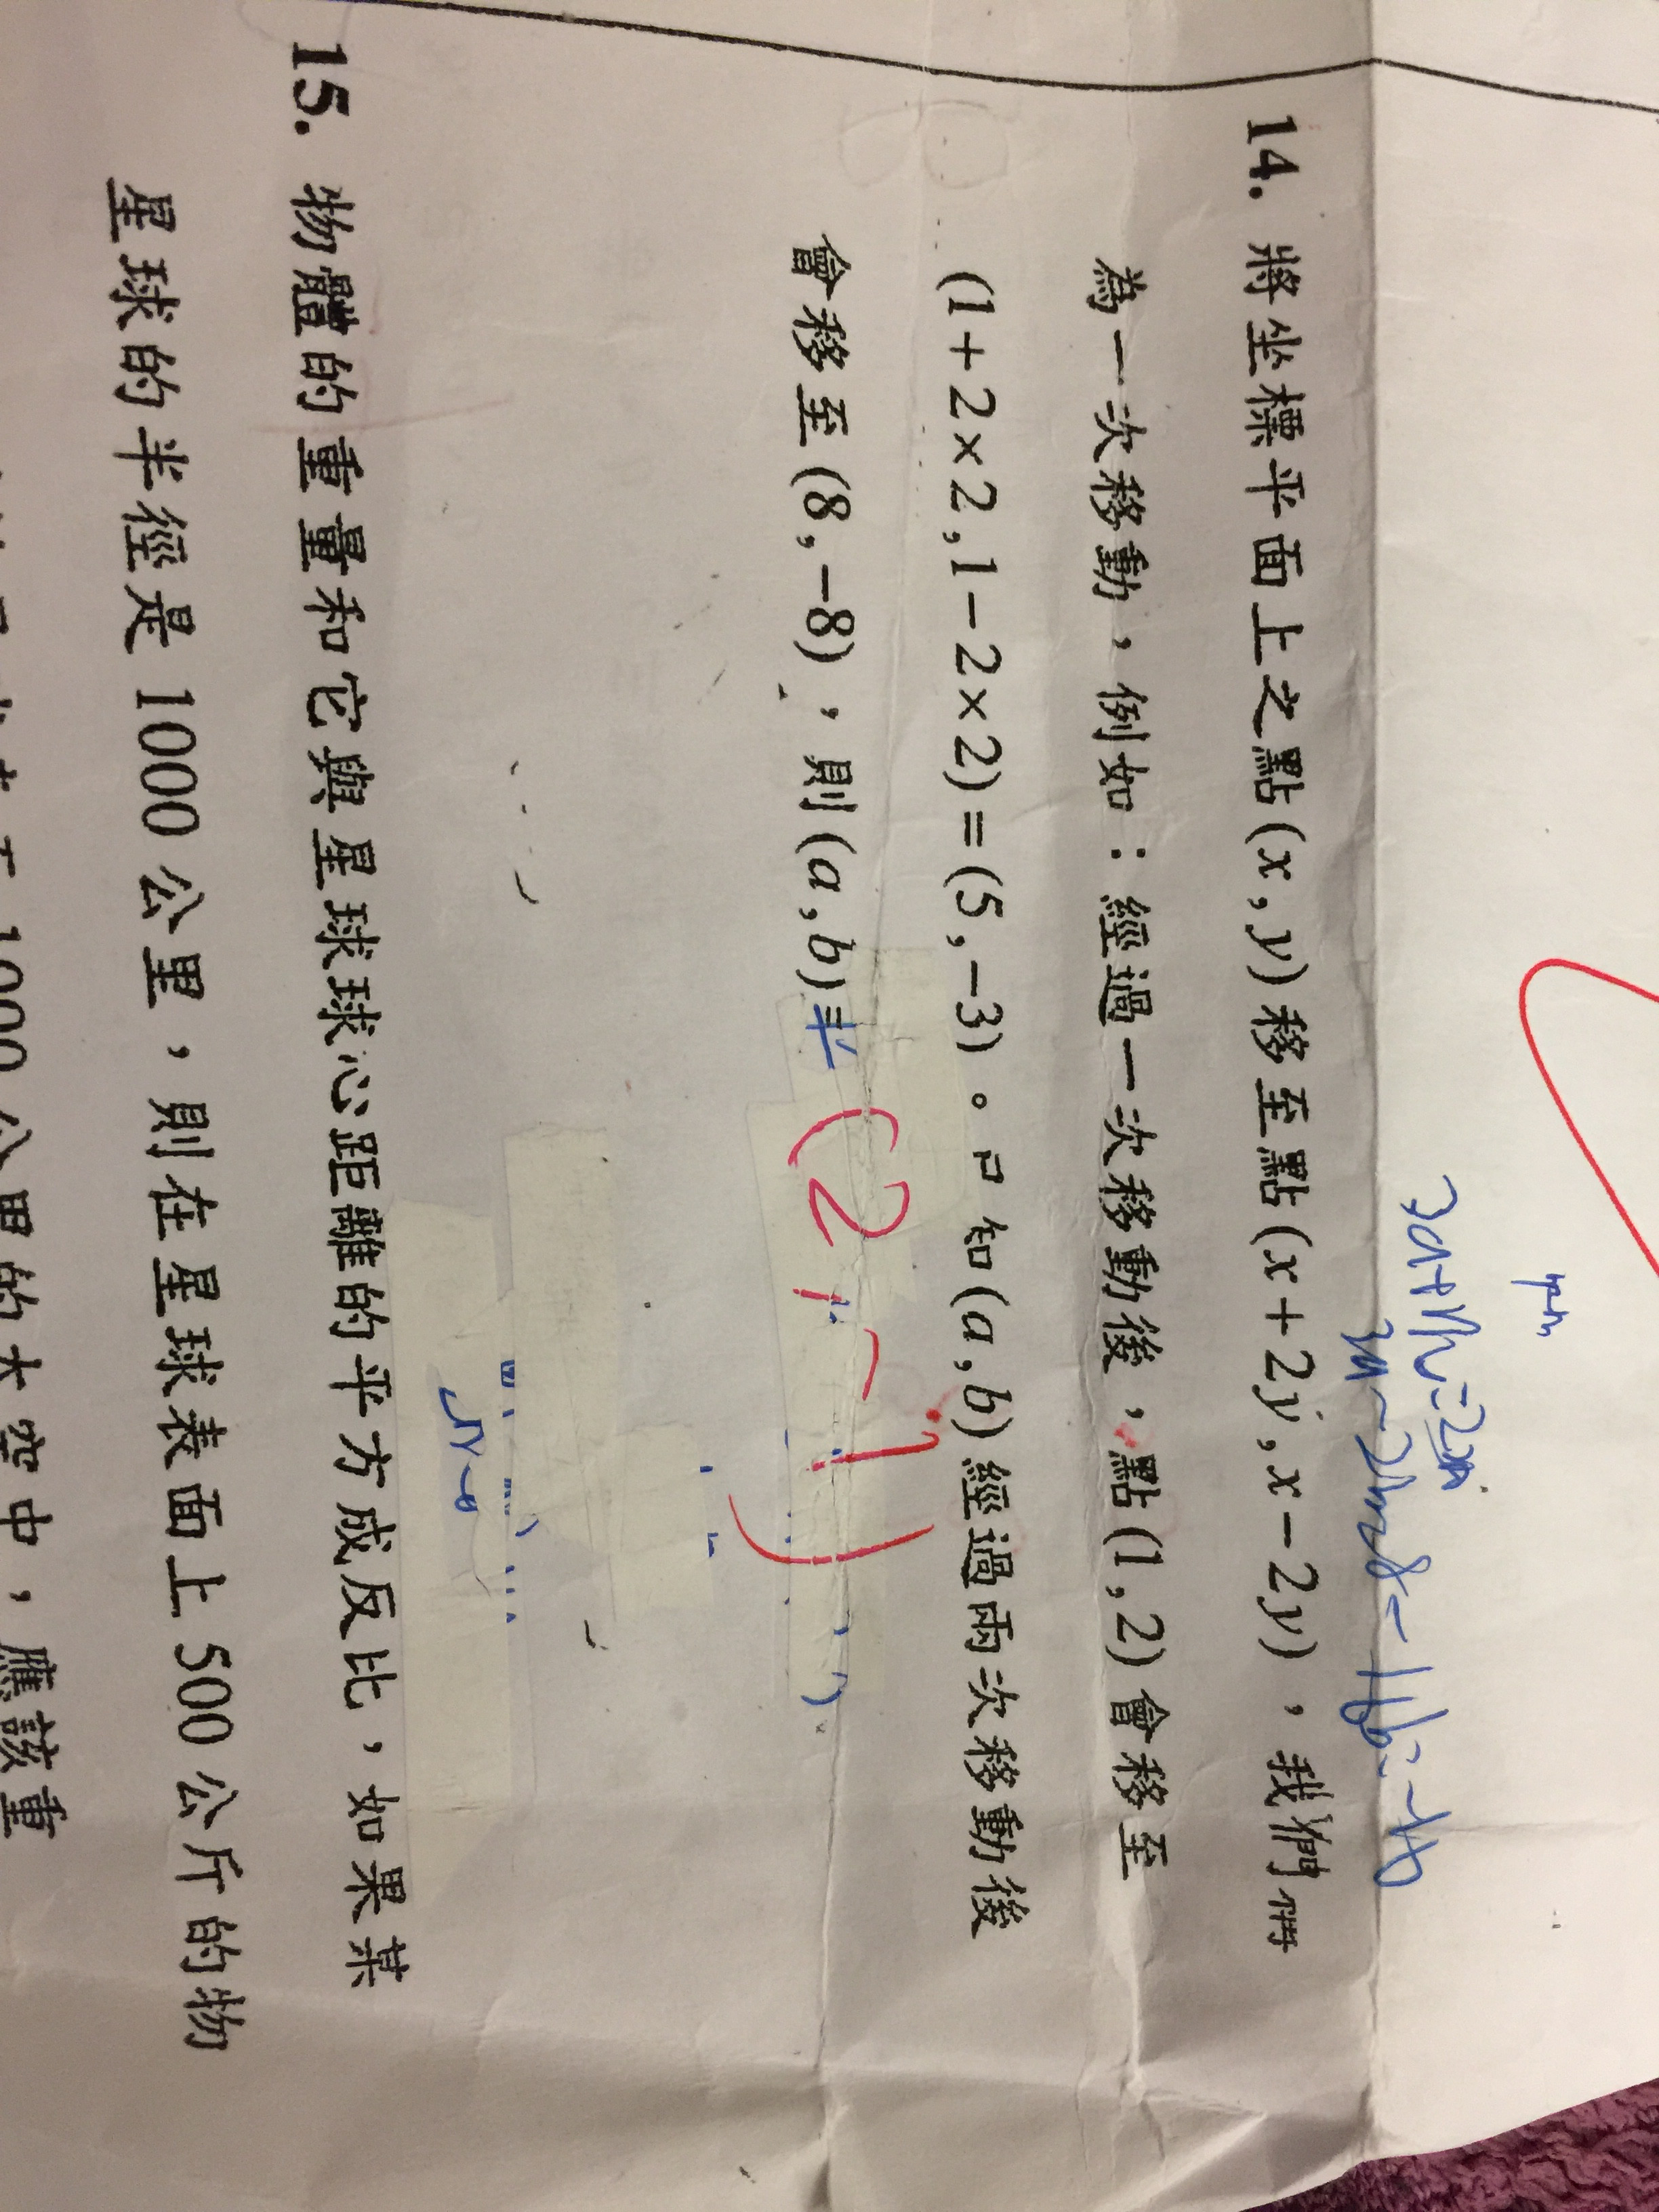 14. 將坐標平面上之點(x,y)移至點(x+2y,x-2y),我們稱
為一次移動,例如:經過一次移動後,點(1,2)會移至
(1+2×2,1-2×2)=(5,-3)。已知(a,b)經過兩次移動後
會移至(8,-8),則(a,b)= (2,-1)
15. 物體的重量和它與星球球心距離的平方成反比,如果某
星球的半徑是1000公里,則在星球表面上500公斤的物
1000公里的太空中,應該重